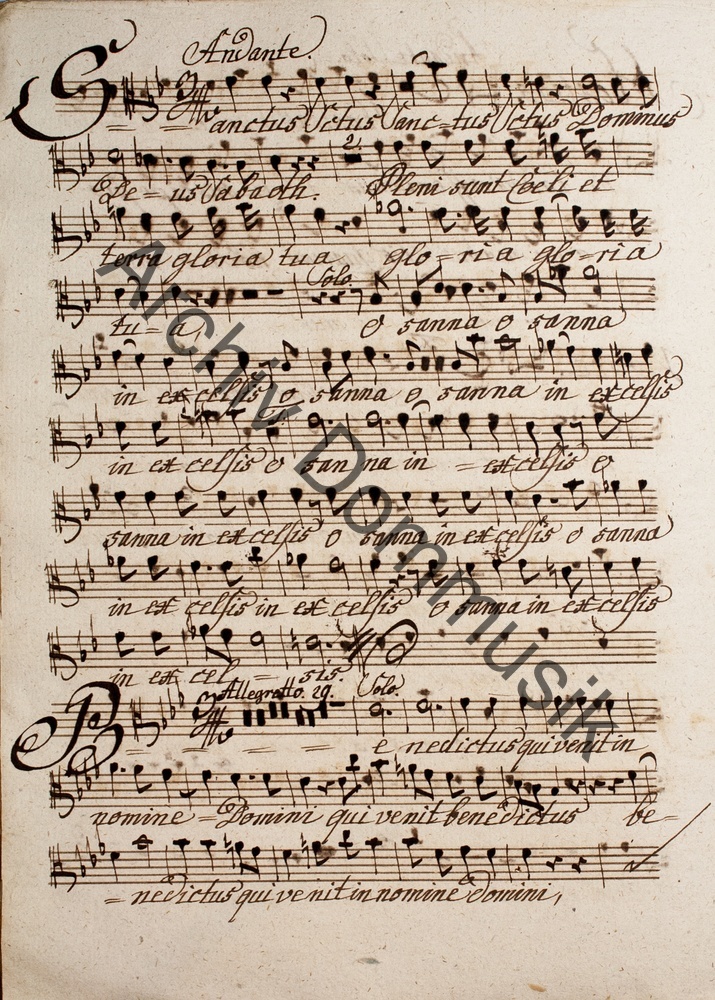 Andante.
Sanctus Sctus Sanc=tus Sctus Dominus
2.
De=us Sabaoth. Pleni sunt Coeli et
terra gloria tua glo=ria glo=ria
Solo.
tu=a, O sanna o sanna
in excelsis o sanna o sanna in excelsis
in excelsis o san na in = excelsis o
sanna in excelsis o sanna in excelsis o sanna
in excelsis in excelsis o sanna in excelsis
in excel = sis.
Allegretto. 29. Solo.
Benedictus qui venit in
nomine = Domini qui venit benedictus be=
=nedictus qui venit in nomine Domini,
Archiv Dommusik